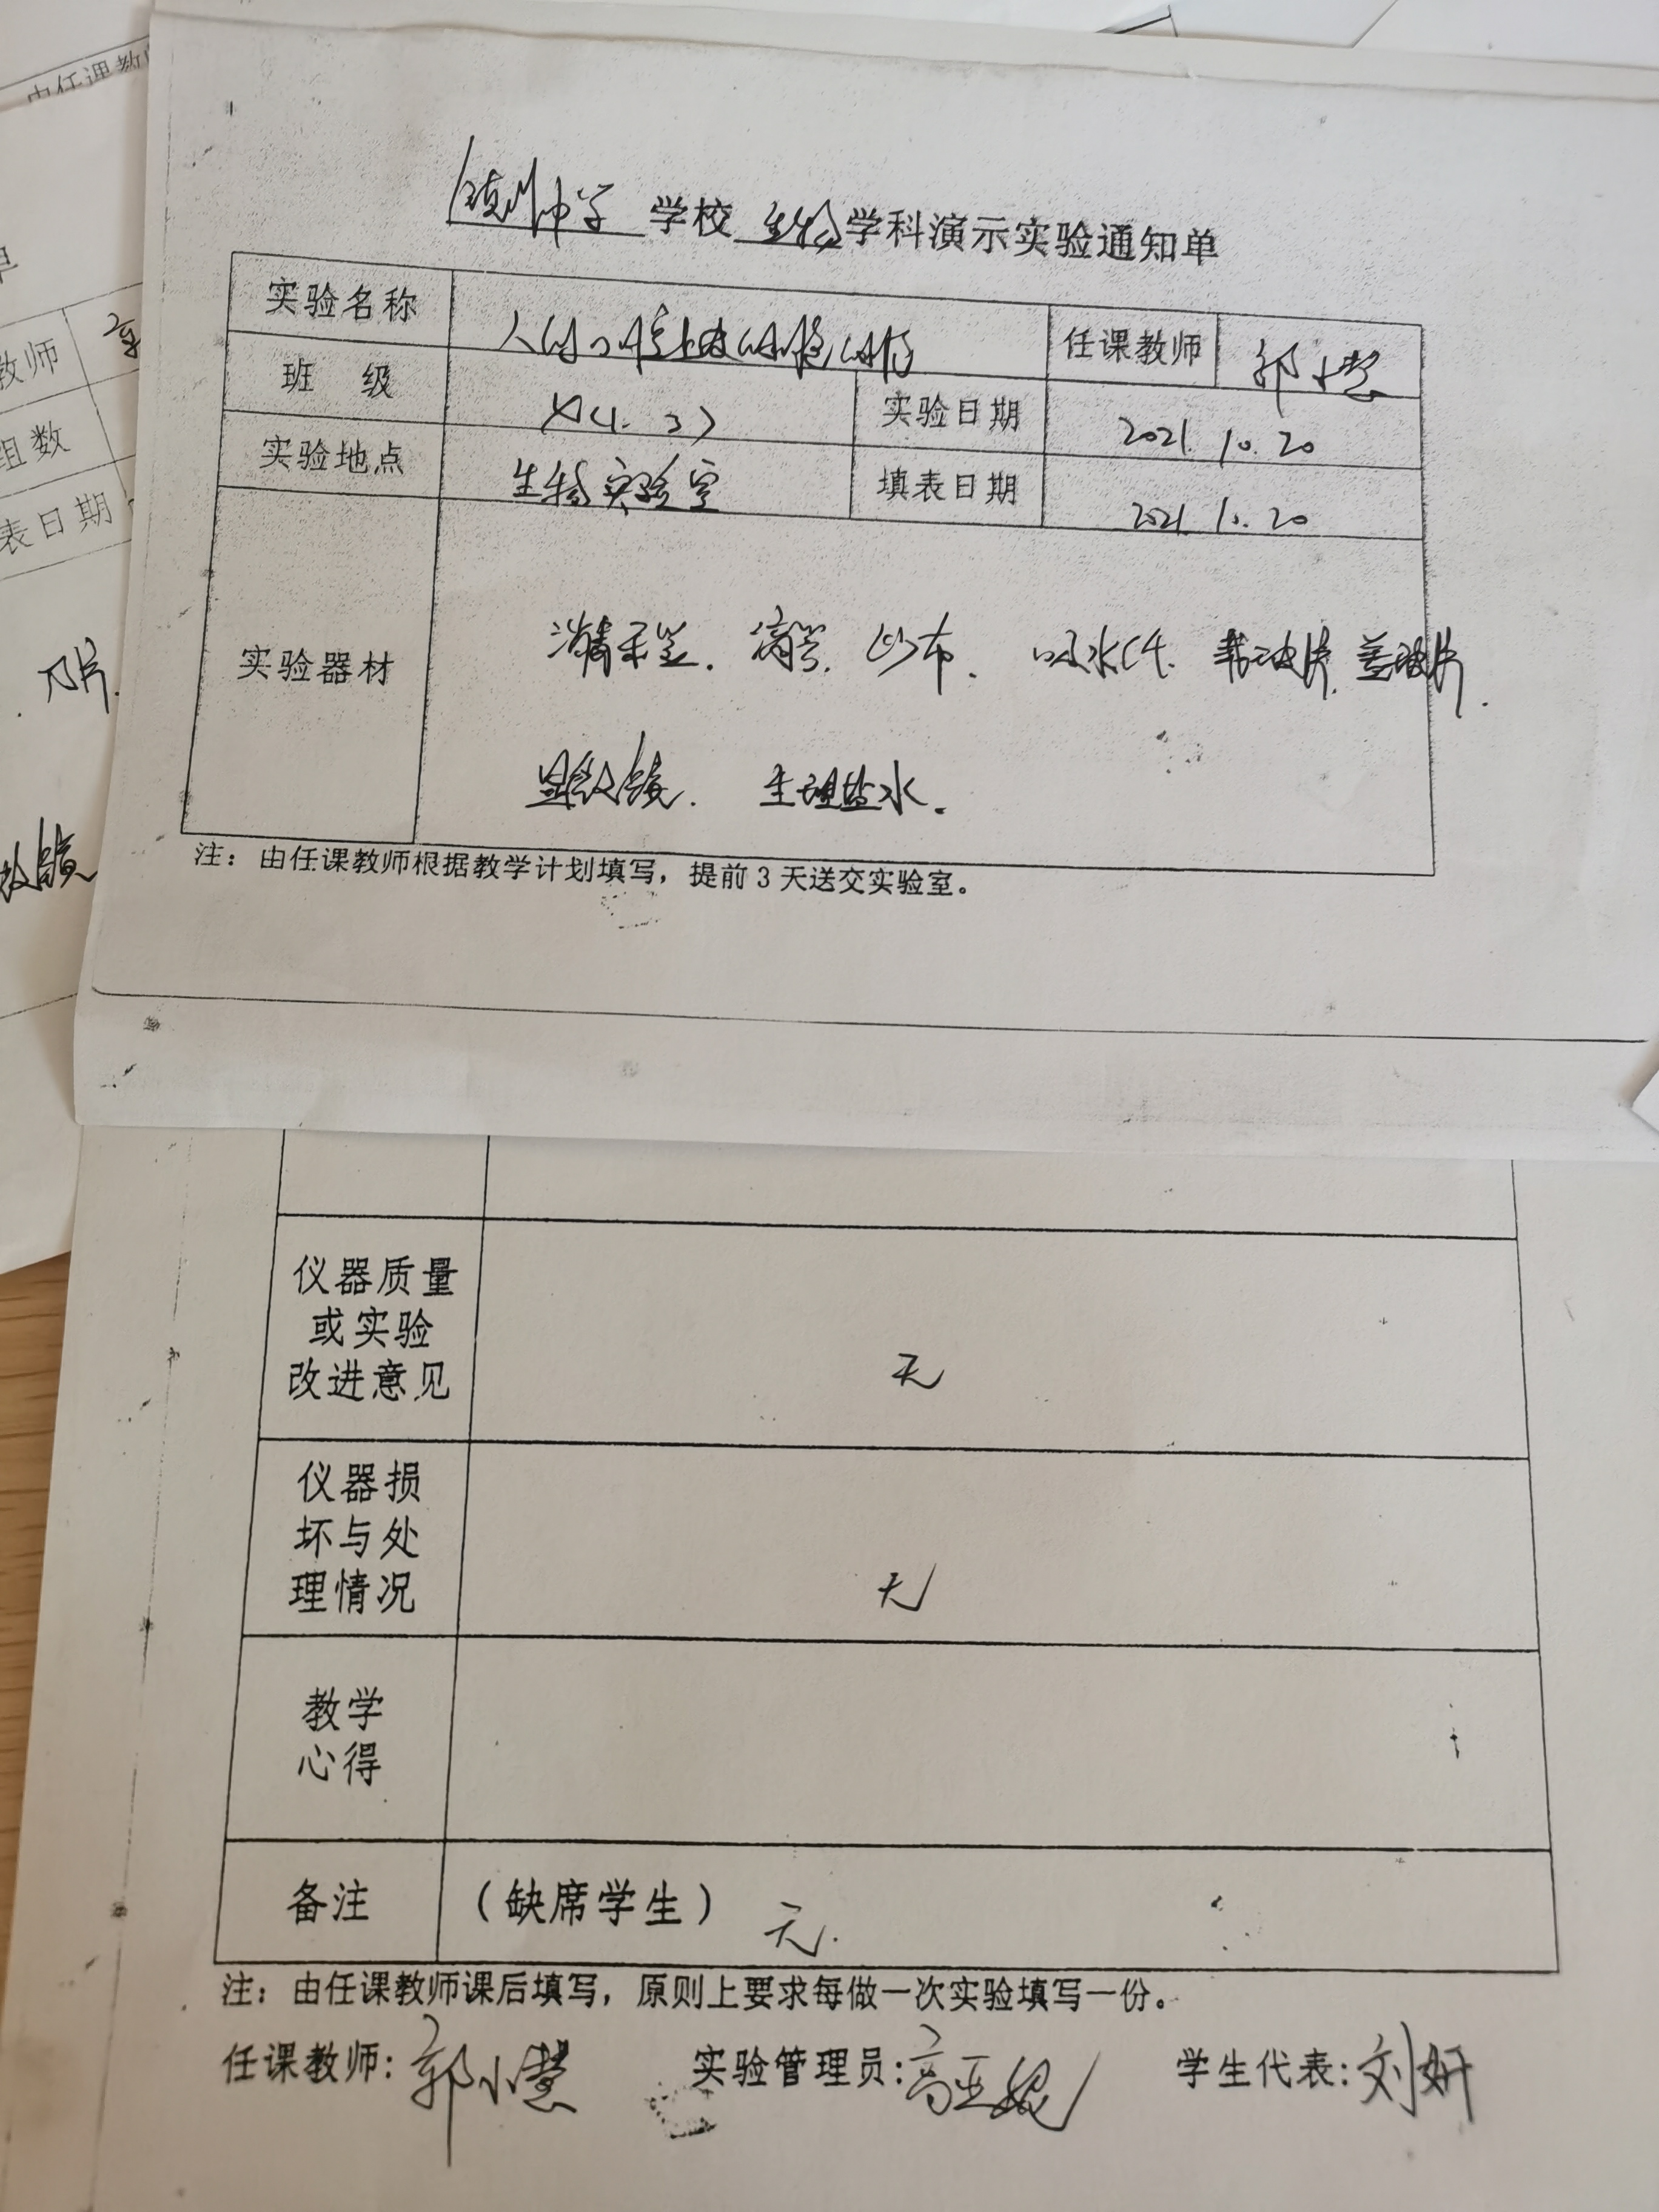 由任课教师
中学 学校 生物 学科演示实验通知单
实验名称 人的口腔上皮 任课教师 郭小慧
班 级 实验日期 2021.10.20
实验地点 生物实验室 填表日期 2021.10.20
实验器材
消毒牙签. 滴管. 纱布. 吸水纸. 载玻片. 盖玻片.
显微镜. 生理盐水.
注：由任课教师根据教学计划填写，提前3天送交实验室。
教师
组数
表日期
刀片.
仪器质量
或实验
改进意见
无
仪器损
坏与处
理情况
无
教学
心得
备注 （缺席学生） 无.
注：由任课教师课后填写，原则上要求每做一次实验填写一份。
任课教师:郭小慧 实验管理员:高亚妮 学生代表:刘妍